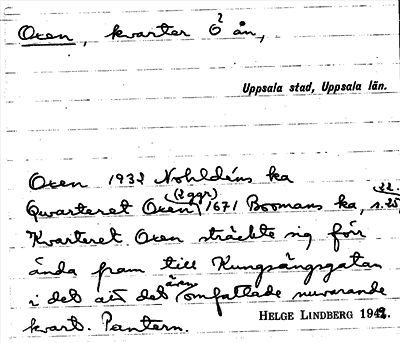 Oxen, kvarter Ö ² ån,
Uppsala stad, Uppsala län.
Oxen 1932 Nohldéns ka
(2 ggr) 22.
Qwarteret Oxen, 1671 Boomans ka, s. 25,
Kvarteret Oxen sträckte sig förr
ända fram till Kungsängsgatan
i det att det även omfattade nuvarande
kvart. Pantern.
HELGE LINDBERG 1942.